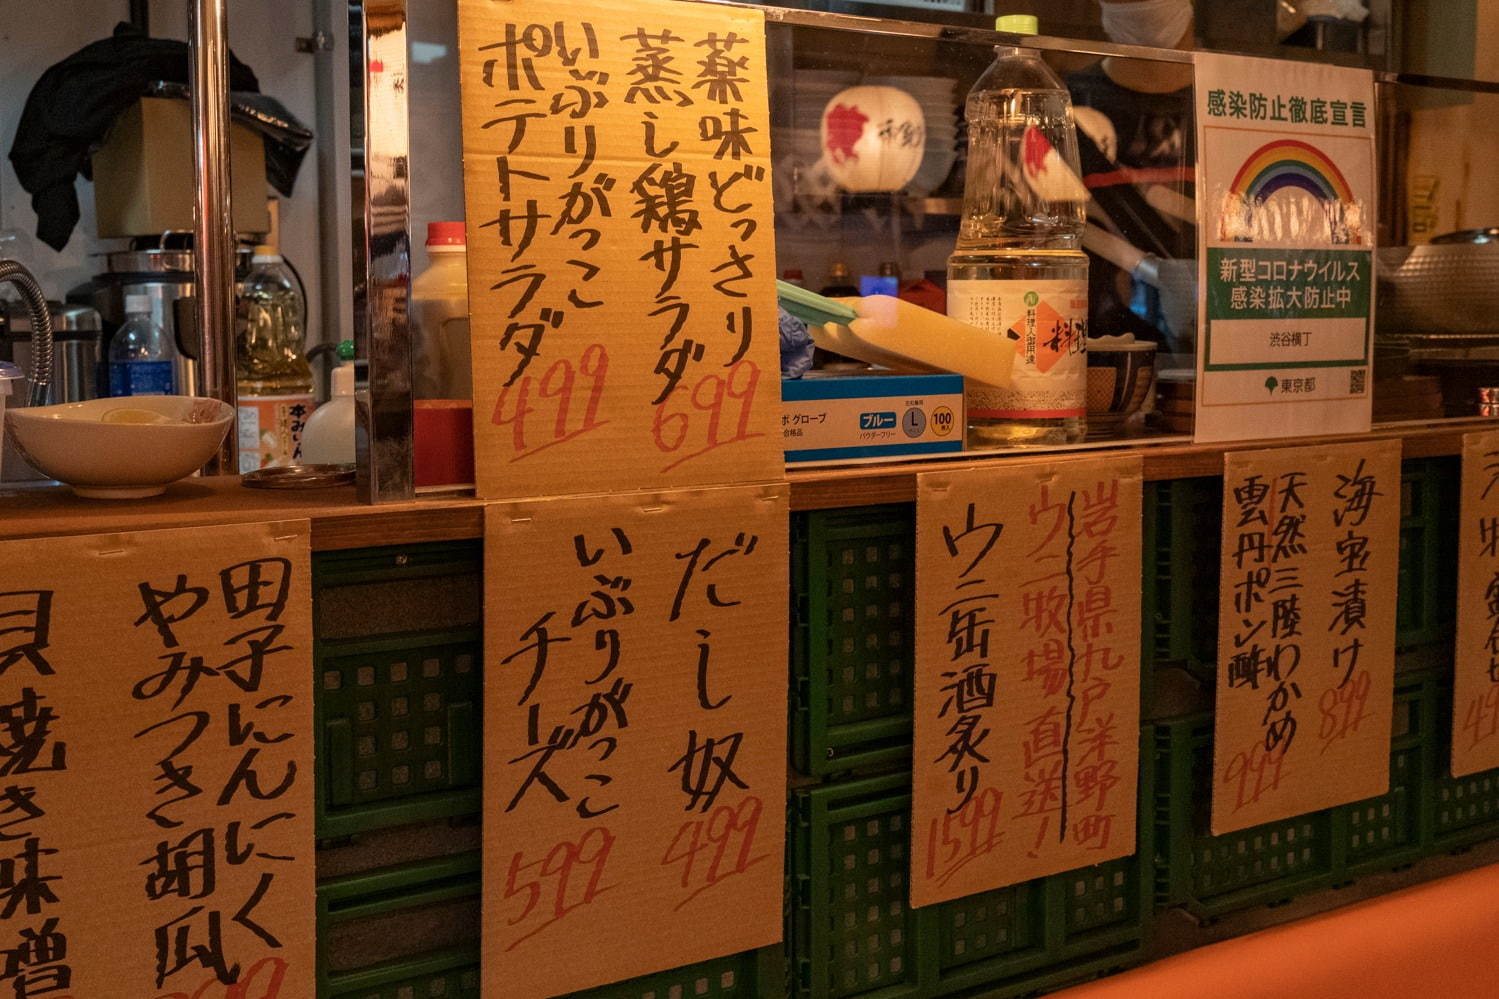 薬味どっさり
蒸し鶏サラダ
699
いぶりがっこ
ポテトサラダ
499
感染防止徹底宣言
新型コロナウイルス
感染拡大防止中
渋谷横丁
東京都
料理人御用達
料理
グローブ
ブルー
パウダーフリー
L
100
本みりん
田子にんにく
やみつき胡瓜
貝焼き味噌
だし奴
499
いぶりがっこ
チーズ
599
岩手県九戸洋野町
ウニ牧場直送!
ウニ缶酒炙り
1599
海宝漬け
899
天然三陸わかめ
雲丹ポン酢
999